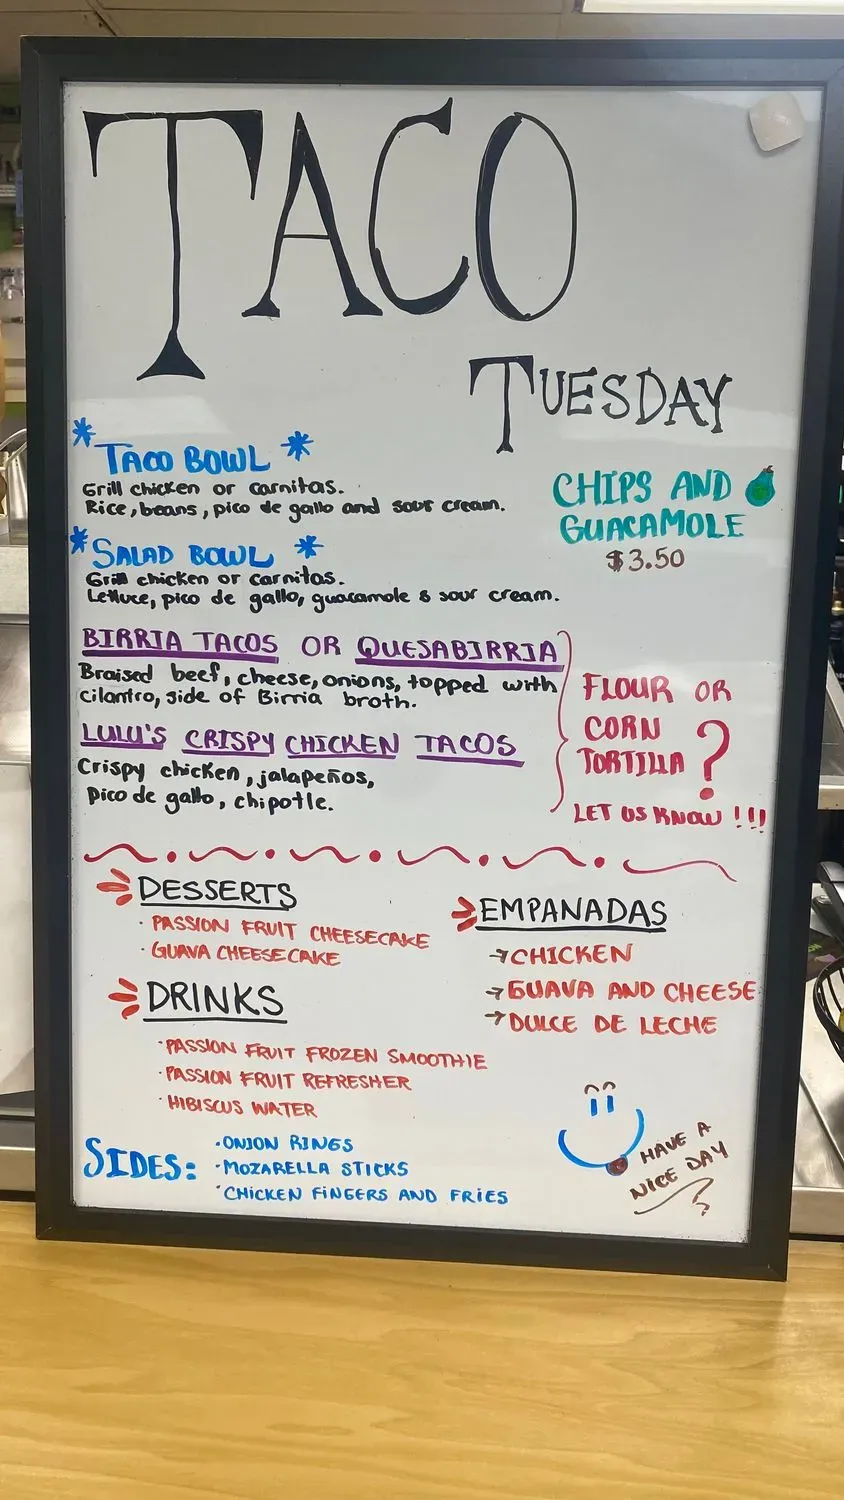 TACO
TUESDAY
* TACO BOWL *
Grill chicken or carnitas.
Rice, beans, pico de gallo and sour cream.
* SALAD BOWL *
Grill chicken or carnitas.
Lettuce, pico de gallo, guacamole & sour cream.
CHIPS AND
GUACAMOLE
$3.50
BIRRIA TACOS OR QUESABIRRIA
Braised beef, cheese, onions, topped with
cilantro, side of Birria broth.
LULU'S CRISPY CHICKEN TACOS
Crispy chicken, jalapeños,
pico de gallo, chipotle.
FLOUR OR
CORN
TORTILLA ?
LET US KNOW !!!
DESSERTS
· PASSION FRUIT CHEESECAKE
· GUAVA CHEESECAKE
DRINKS
· PASSION FRUIT FROZEN SMOOTHIE
· PASSION FRUIT REFRESHER
· HIBISCUS WATER
EMPANADAS
→ CHICKEN
→ GUAVA AND CHEESE
→ DULCE DE LECHE
SIDES:
· ONION RINGS
· MOZARELLA STICKS
· CHICKEN FINGERS AND FRIES
HAVE A
NICE DAY